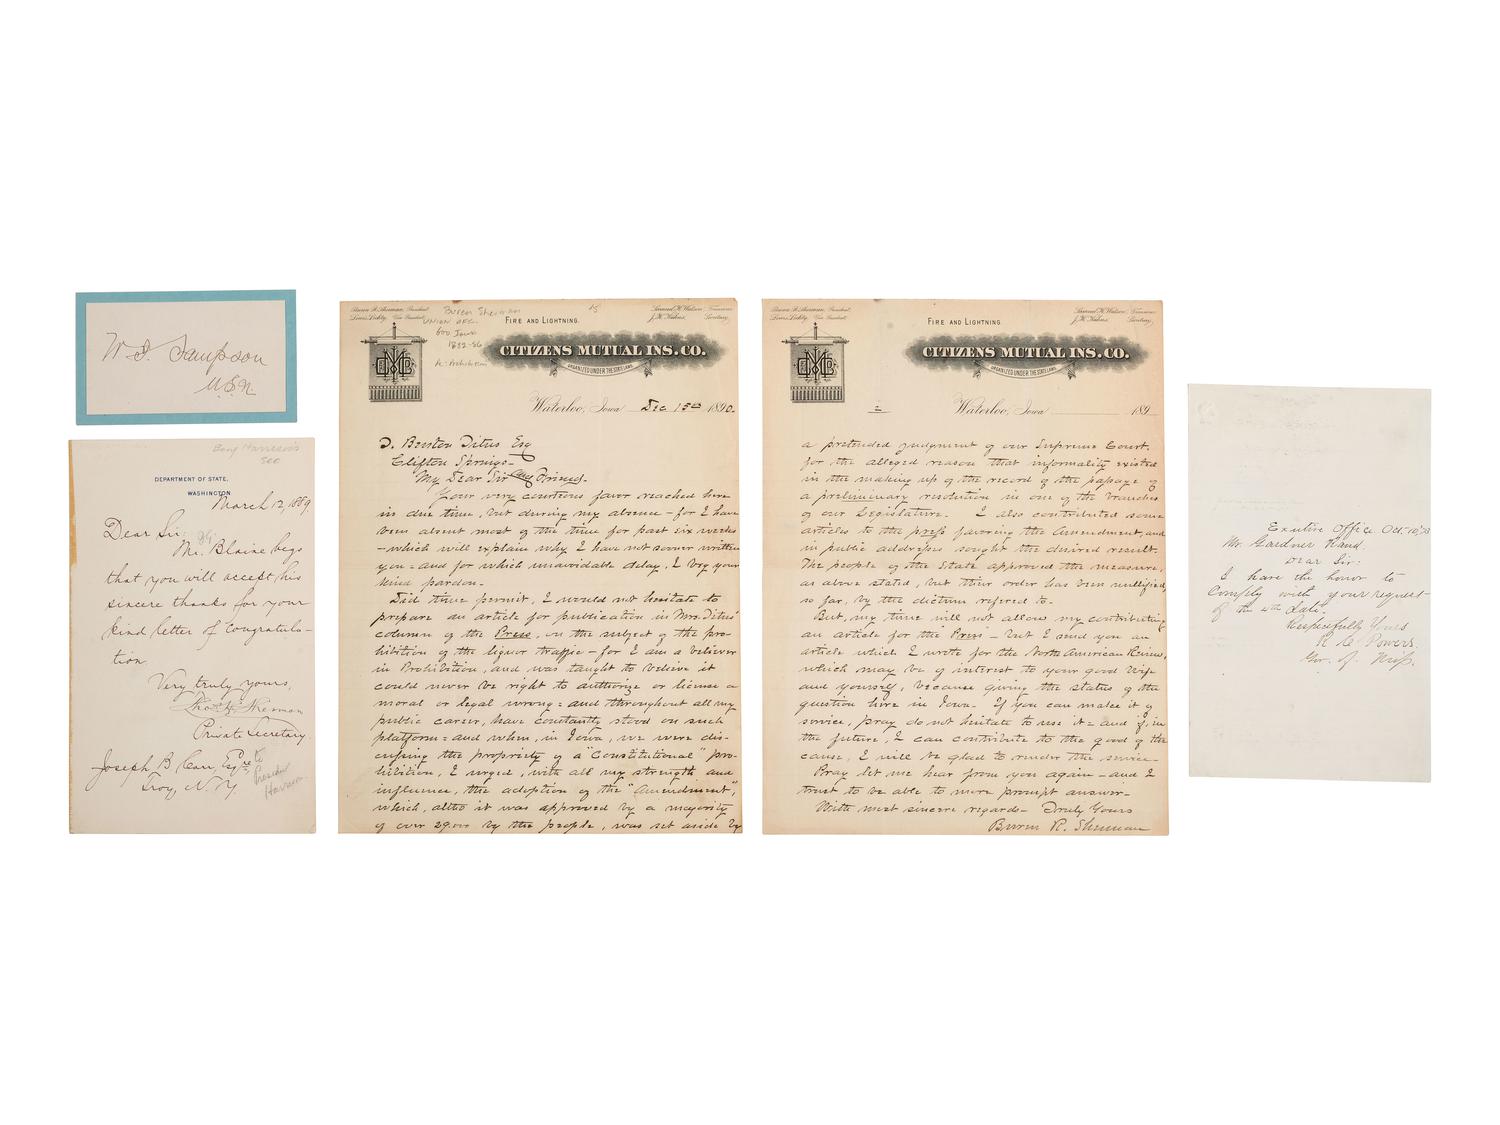 W. T. Sampson
U.S.N.
Benj Harrison's
Sec
DEPARTMENT OF STATE,
WASHINGTON
March 12, 1889
Dear Sir:
Mr. Blaine begs
that you will accept his
sincere thanks for your
kind letter of Congratula-
tion.
Very truly yours,
Sherman
Private Secretary.
Joseph B Carr, Esqre
Troy, N. Y.
to
President
Harrison
Buren R. Sherman, President
Louis Lichty, Vice President
Buren Sherman
UNION OFC.
Gov Iowa
1882-86
Re-Prohibition
15
FIRE AND LIGHTNING.
Samuel H. Watson, Treasurer
Secretary
CITIZENS MUTUAL INS. CO.
ORGANIZED UNDER THE STATE LAWS.
Waterloo, Iowa Dec 13th 1890.
D. Benton Titus Esq
Clifton Springs-
My Dear Sir and Friend-
Your very courteous favor reached here
in due time, but during my absence - for I have
been absent most of the time for past six weeks
- which will explain why I have not sooner written
you - and for which unavoidable delay, I beg your
kind pardon.
Did time permit, I would not hesitate to
prepare an article for publication in Mrs. Titus'
column of the Press, on the subject of the pro-
hibition of the liquor traffic - for I am a believer
in Prohibition, and was taught to believe it
could never be right to authorize or license a
moral or legal wrong - and throughout all my
public career, have constantly stood on such
platform - and when, in Iowa, we were dis-
cussing the propriety of a "Constitutional" pro-
hibition, I urged, with all my strength and
influence, the adoption of the "Amendment",
which, altho it was approved by a majority
of over 29.000 by the people, was set aside by
Buren R. Sherman, President
Louis Lichty, Vice President
FIRE AND LIGHTNING.
Samuel H. Watson, Treasurer
Secretary
CITIZENS MUTUAL INS. CO.
ORGANIZED UNDER THE STATE LAWS.
Waterloo, Iowa 189
a pretended judgment of our Supreme Court.
for the alleged reason that informality existed
in the making up of the record of the passage of
a preliminary resolution in one of the branches
of our Legislature. I also contributed some
articles to the press favoring the Amendment, and
in public addresses sought the desired result.
The people of the State approved the measure,
as above stated, but their order has been nullified,
so far, by the dictum referred to.
But, my time will not allow my contributing
an article for the Press - but I send you an
article which I wrote for the North American Review,
which may be of interest to your good Wife
and yourself, because giving the status of the
question here in Iowa. If you can make it of
service, pray do not hesitate to use it - and if, in
the future, I can contribute to the good of the
cause, I will be glad to render the service-
Pray let me hear from you again - and I
trust to be able to more prompt answer-
With most sincere regards- Truly Yours
Buren R. Sherman
Exutive Office Oct-10
Mr. Gardner Rand.
Dear Sir:
I have the honor to
Comply with your request
of the 4th Date.
Respectfully Yours
R C Powers.
Gov. of Miss.